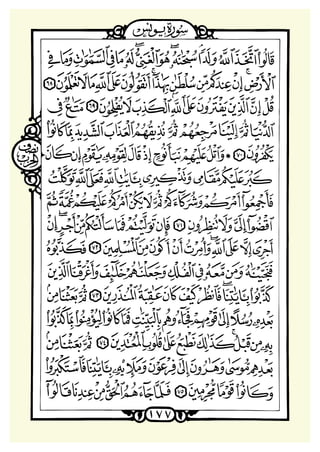 سُورَةُ يُونُسَ
قَالُوا۟ ٱتَّخَذَ ٱللَّهُ وَلَدًا سُبْحَٰنَهُۥ هُوَ ٱلْغَنِىُّ لَهُۥ مَا فِى ٱلسَّمَٰوَٰتِ وَمَا فِى
ٱلْأَرْضِ إِنْ عِندَكُم مِّن سُلْطَٰنٍۭ بِهَٰذَآ أَتَقُولُونَ عَلَى ٱللَّهِ مَا لَا تَعْلَمُونَ ٦٨
قُلْ إِنَّ ٱلَّذِينَ يَفْتَرُونَ عَلَى ٱللَّهِ ٱلْكَذِبَ لَا يُفْلِحُونَ ٦٩ مَتَٰعٌ فِى
ٱلدُّنْيَا ثُمَّ إِلَيْنَا مَرْجِعُهُمْ ثُمَّ نُذِيقُهُمُ ٱلْعَذَابَ ٱلشَّدِيدَ بِمَا كَانُوا۟
يَكْفُرُونَ ٧٠ وَٱتْلُ عَلَيْهِمْ نَبَأَ نُوحٍ إِذْ قَالَ لِقَوْمِهِۦ يَٰقَوْمِ إِن كَانَ
كَبُرَ عَلَيْكُم مَّقَامِى وَتَذْكِيرِى بِـَٔايَٰتِ ٱللَّهِ فَعَلَى ٱللَّهِ تَوَكَّلْتُ
فَأَجْمِعُوٓا۟ أَمْرَكُمْ وَشُرَكَآءَكُمْ ثُمَّ لَا يَكُنْ أَمْرُكُمْ عَلَيْكُمْ غُمَّةً ثُمَّ
ٱقْضُوٓا۟ إِلَىَّ وَلَا تُنظِرُونِ ٧١ فَإِن تَوَلَّيْتُمْ فَمَا سَأَلْتُكُم مِّنْ أَجْرٍ إِنْ
أَجْرِىَ إِلَّا عَلَى ٱللَّهِ وَأُمِرْتُ أَنْ أَكُونَ مِنَ ٱلْمُسْلِمِينَ ٧٢ فَكَذَّبُوهُ
فَنَجَّيْنَٰهُ وَمَن مَّعَهُۥ فِى ٱلْفُلْكِ وَجَعَلْنَٰهُمْ خَلَٰٓئِفَ وَأَغْرَقْنَا ٱلَّذِينَ
كَذَّبُوا۟ بِـَٔايَٰتِنَا فَٱنظُرْ كَيْفَ كَانَ عَٰقِبَةُ ٱلْمُنذَرِينَ ٧٣ ثُمَّ بَعَثْنَا مِنۢ
بَعْدِهِۦ رُسُلًا إِلَىٰ قَوْمِهِمْ فَجَآءُوهُم بِٱلْبَيِّنَٰتِ فَمَا كَانُوا۟ لِيُؤْمِنُوا۟ بِمَا كَذَّبُوا۟
بِهِۦ مِن قَبْلُ كَذَٰلِكَ نَطْبَعُ عَلَىٰ قُلُوبِ ٱلْمُعْتَدِينَ ٧٤ ثُمَّ بَعَثْنَا مِنۢ
بَعْدِهِم مُّوسَىٰ وَهَٰرُونَ إِلَىٰ فِرْعَوْنَ وَمَلَإِي۟هِۦ بِـَٔايَٰتِنَا فَٱسْتَكْبَرُوا۟
وَكَانُوا۟ قَوْمًا مُّجْرِمِينَ ٧٥ فَلَمَّا جَآءَهُمُ ٱلْحَقُّ مِنْ عِندِنَا قَالُوٓا۟
١٧٧
نصف
الحزب